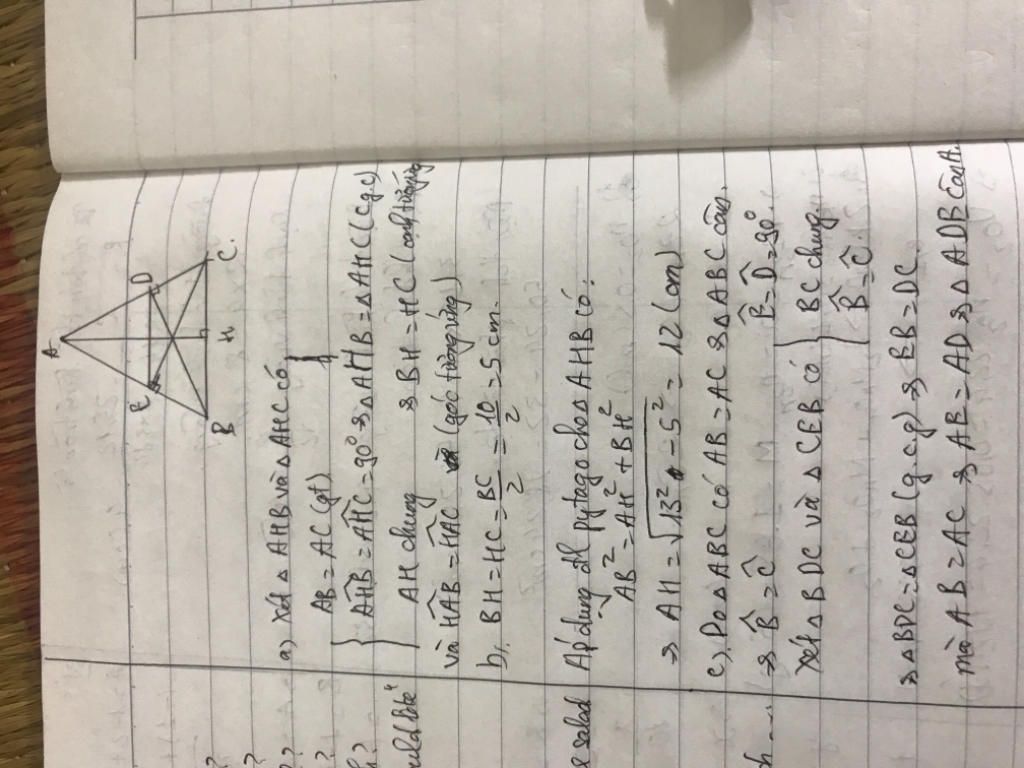 A
E
D
B
H
C.
a) Xét Δ AHB và Δ AHC có
AB = AC (gt)
AĤB = AĤC = 90° ⇒ Δ AHB = Δ AHC (c.g.c)
AH chung ⇒ BH = HC (cạnh tương
và HÂB = HÂC (góc tương ứng)
b, BH = HC = BC/2 = 10/2 = 5 cm.
Áp dụng đl pytago cho Δ AHB có:
AB² = AH² + BH²
⇒ AH = √13² - 5² = 12 (cm)
c, Do Δ ABC có AB = AC ⇒ Δ ABC cân.
⇒ B̂ = Ĉ
B̂ = D̂ = 90°
Xét Δ BDC và Δ CEB có BC chung
B̂ = Ĉ.
⇒ Δ BDC = Δ CEB (g.c.g) ⇒ EB = DC.
mà AB = AC ⇒ AB = AD ⇒ Δ ADB cân A.
?
?
??
?
h?
uld like"
e salad
h ...